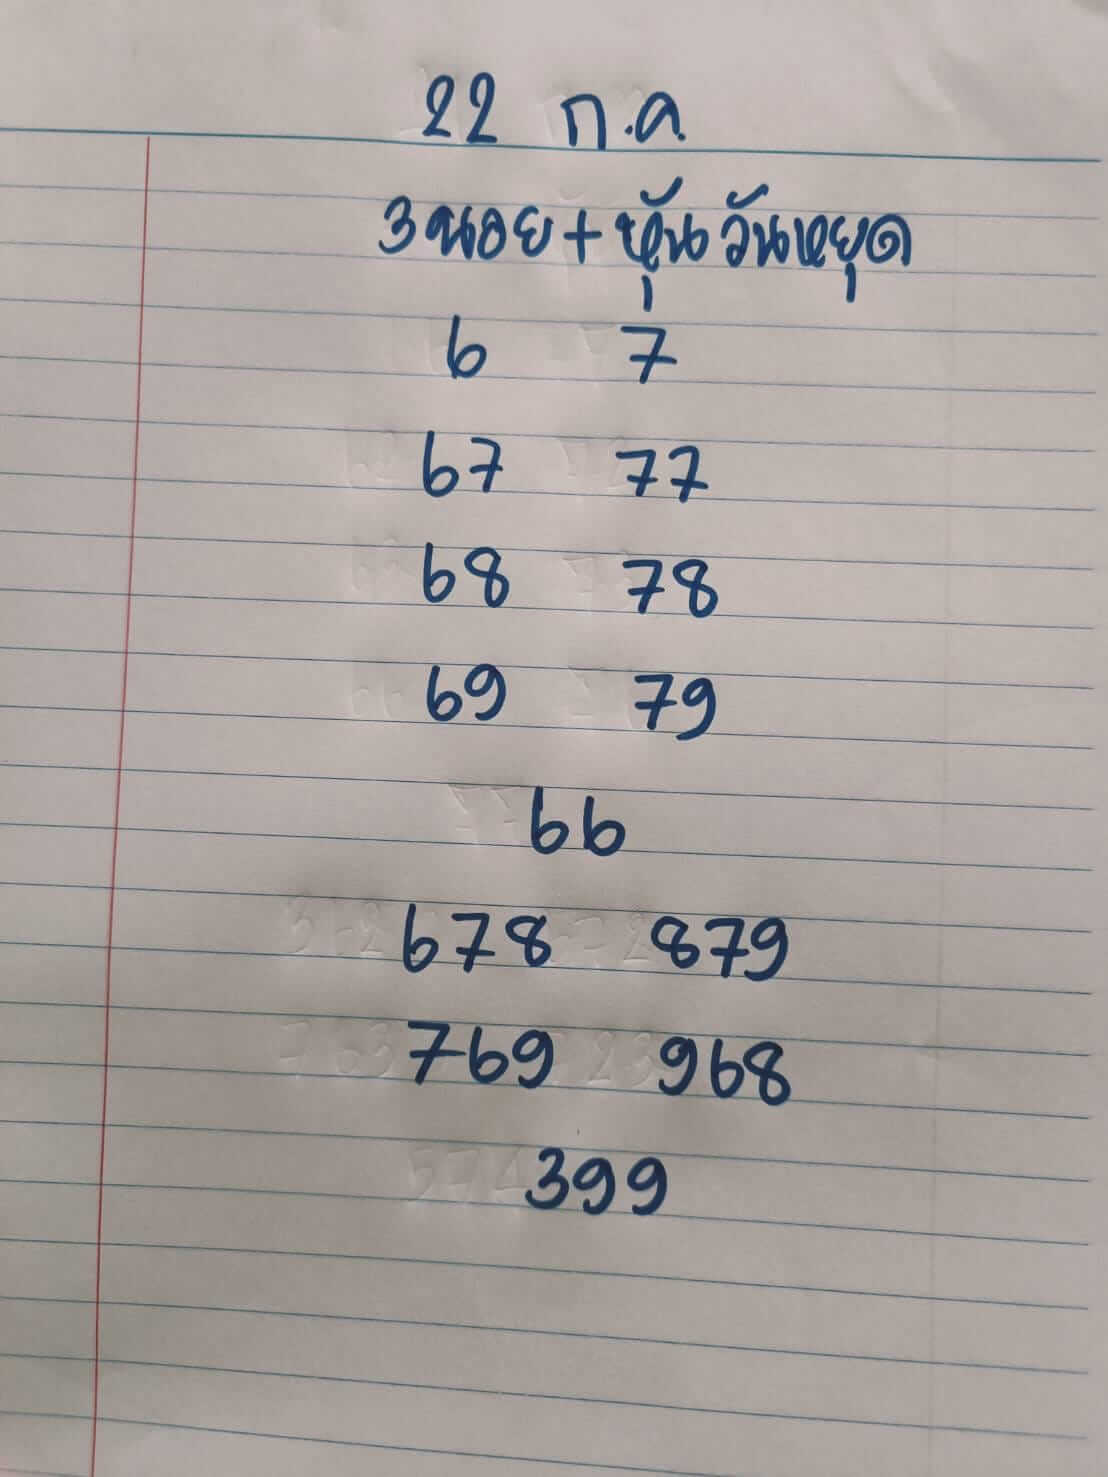 22 ก.ค.
3 นอย + หุ้นวันหยุด
6 7
67 77
68 78
69 79
66
678 879
769 968
399